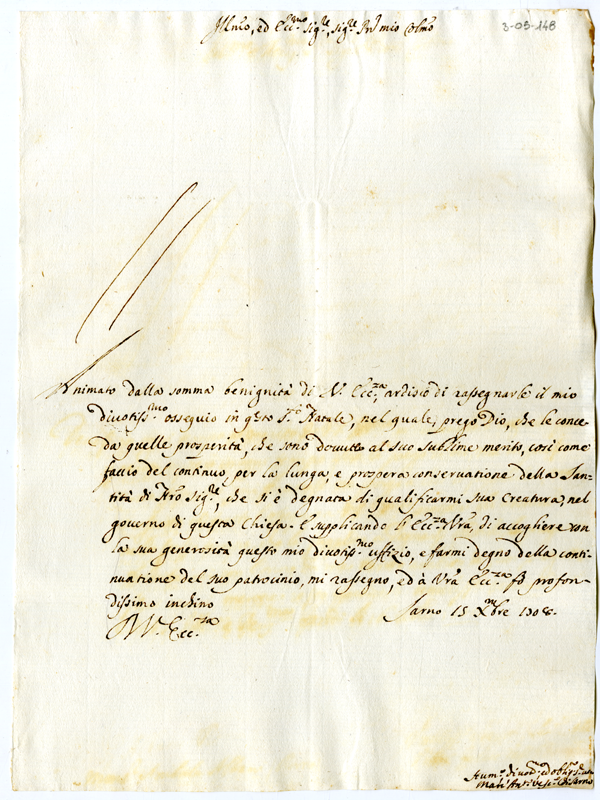 Illmo, ed Eccmo Sigre, Sigre Prõ mio Colmo
3-05-148
Animato dalla somma benignità di V. Ecc.za ardisco di rassegnarle il mio
divotiss.mo ossequio in qsto S.to Natale, nel quale, prego Dio, che le conce-
da quelle prosperità, che sono dovutte al suo sublime merito, così come
faccio del continuo, per la lunga, e prospera conservatione della San-
tità di Nro Sigre, che si è degnata di qualificarmi sua Creatura, nel
governo di questa Chiesa. E supplicando l'Ecc.za Vra, di accogliere con
la sua generosità questo mio divotiss.mo uffizio, e farmi degno della conti-
nuatione del suo patrocinio, mi rassegno, ed à Vra Ecc.za fò profon-
dissimo inchino
Sarno 15 Xmbre 1708.
D V. Ecc.za
Hum.o divot.o ed obl.o
Vesc.o di Sarno